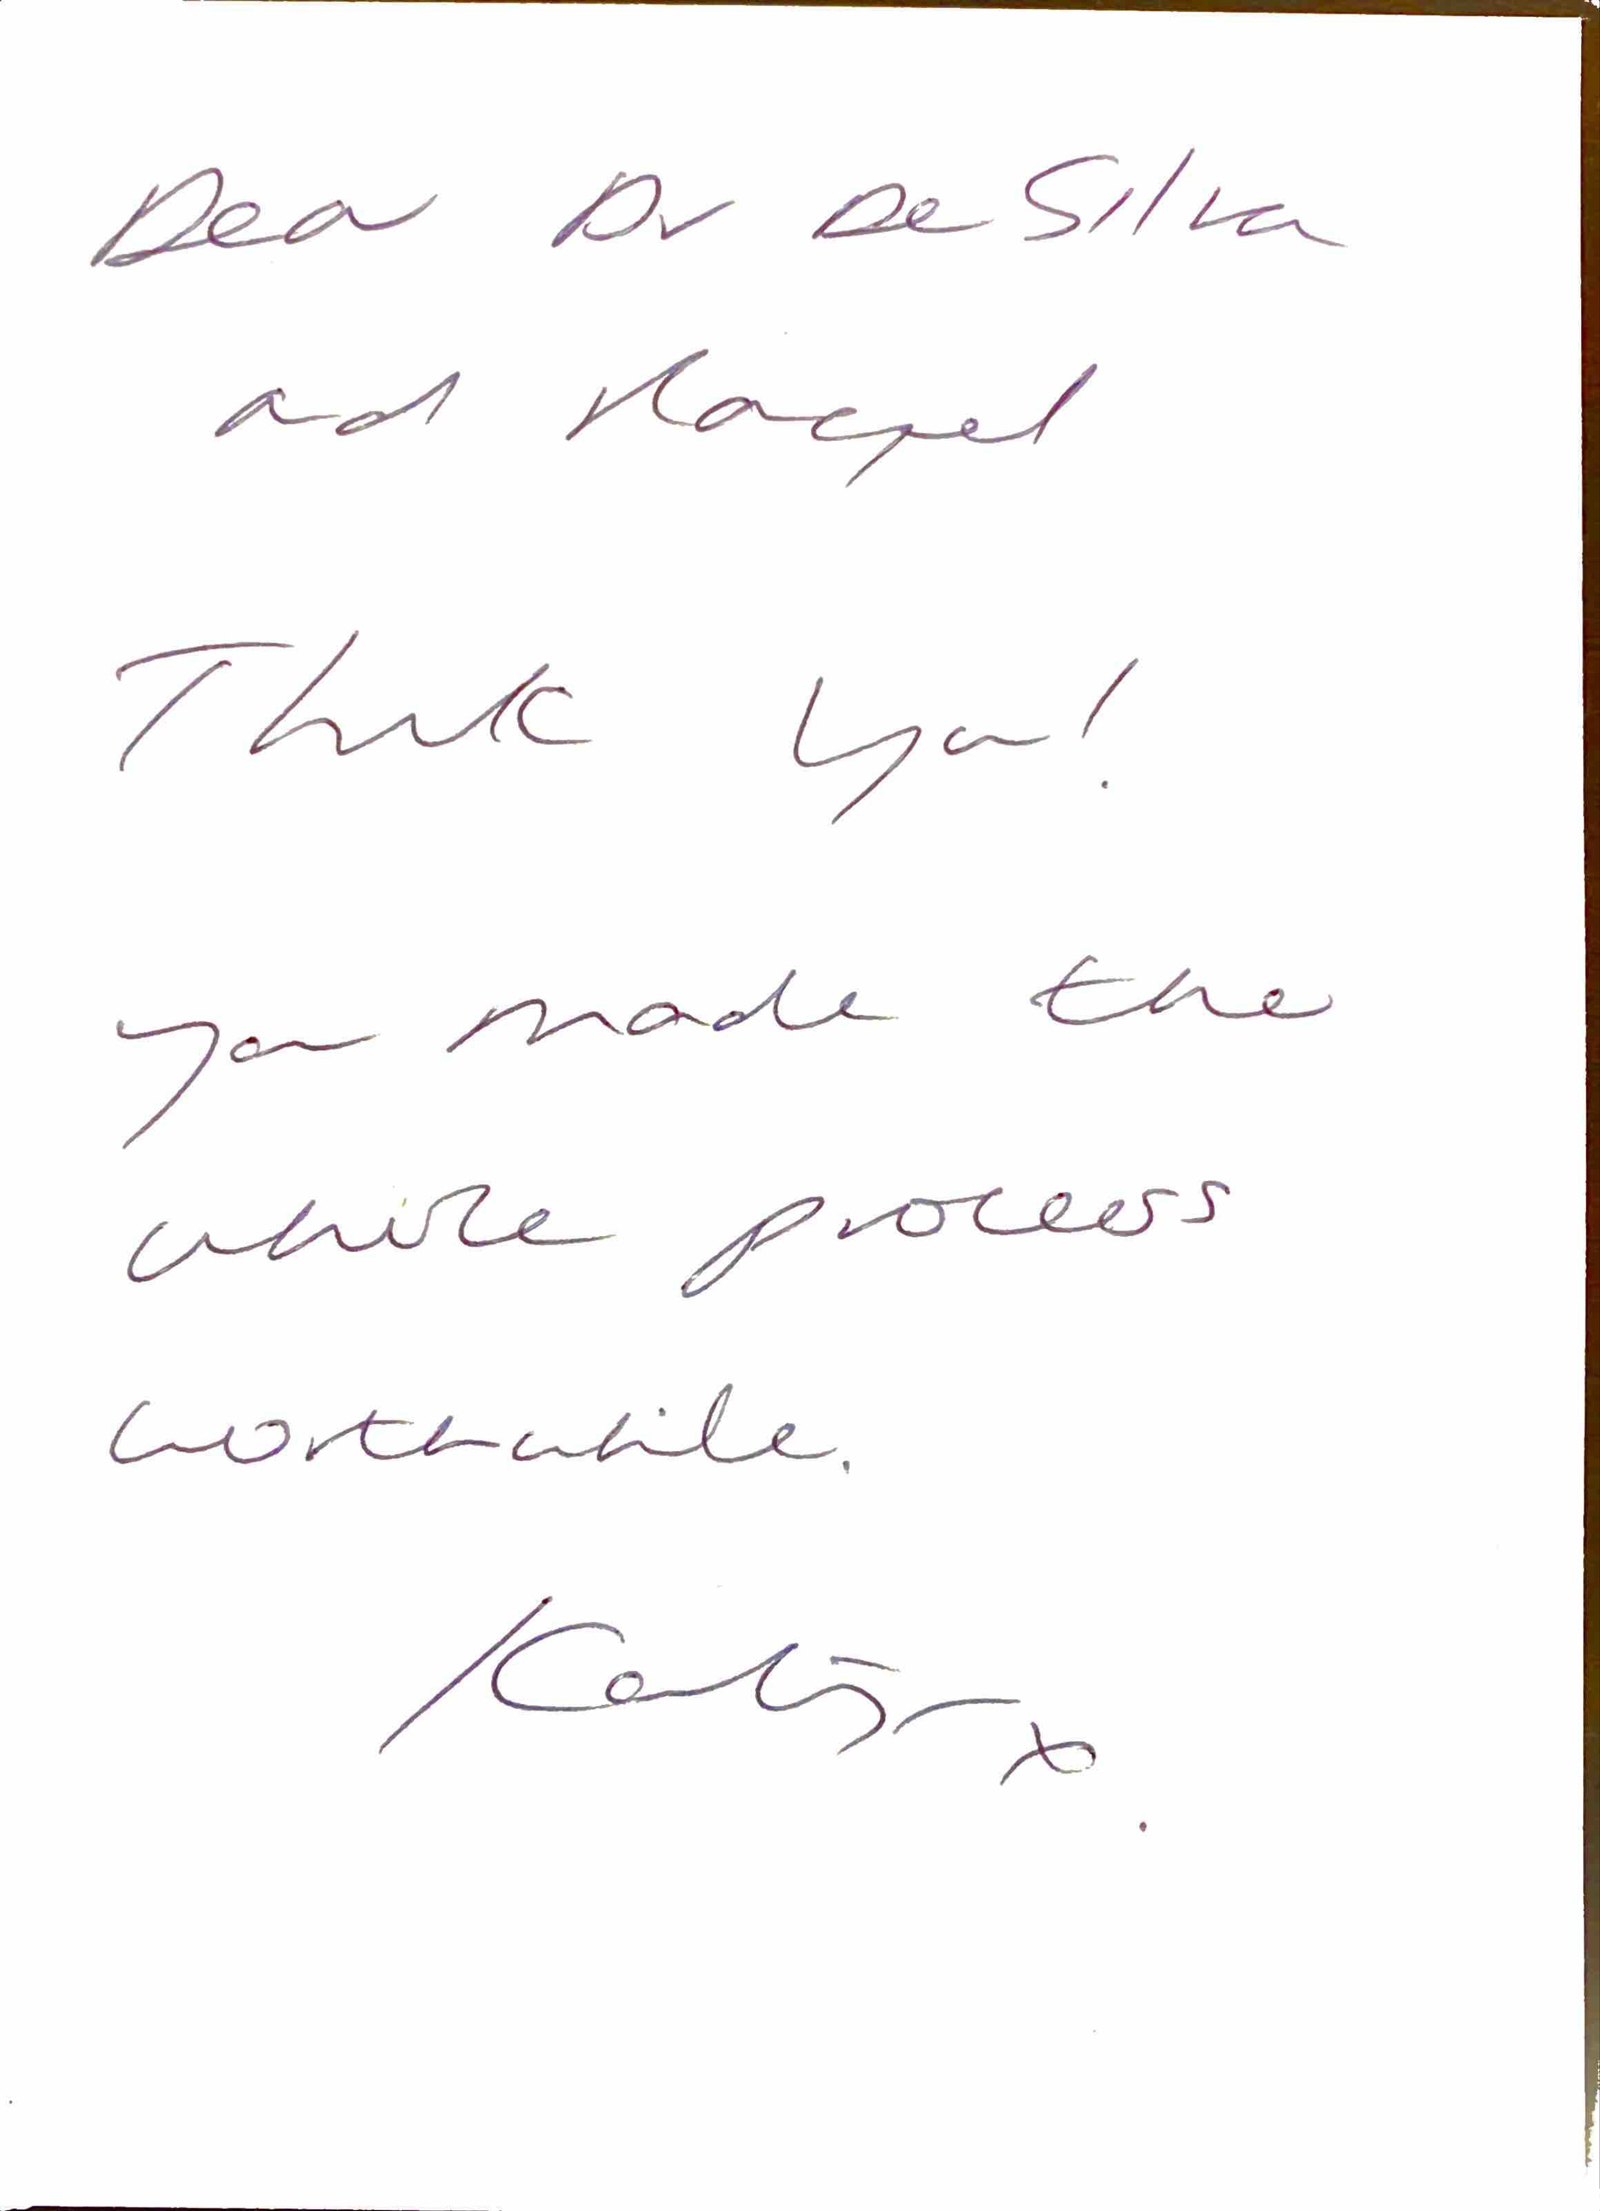 Dear Dr De Silva
and
Thank you!
You made the
whole process
worthwhile.
x.